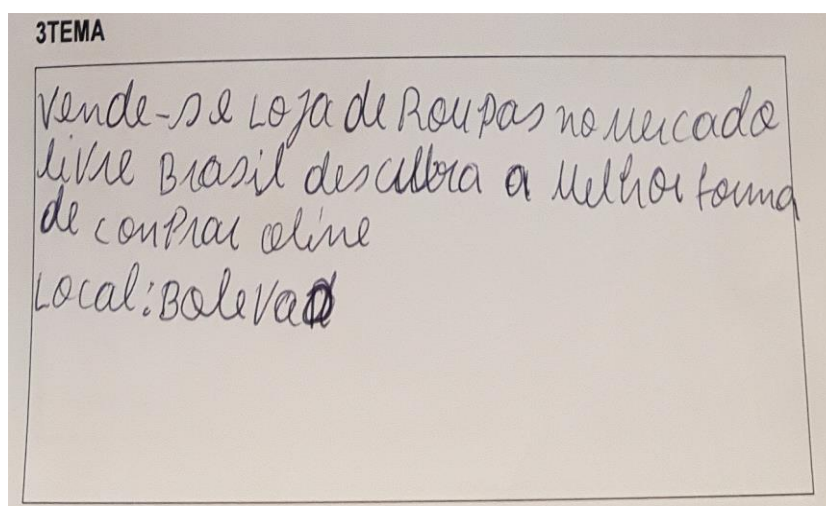 3TEMA
Vende-se Loja de Roupas no mercado
livre Brasil descubra a Melhor forma
de comprar oline
Local: Bolevad